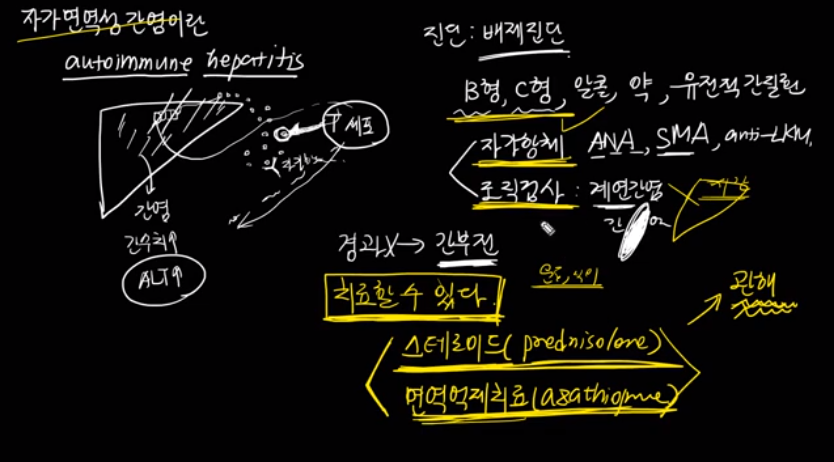 자가면역성간염이란
autoimmune hepatitis
T세포
간염
간수치↑
ALT↑
진단 : 배제진단
B형, C형, 알콜, 약, 유전적간질환
자가항체 ANA, SMA, anti-LKM,
조직검사 : 계면간염
경과X → 간부전
치료할 수 있다.
스테로이드(prednisolone)
면역억제치료(azathioprine)
관해